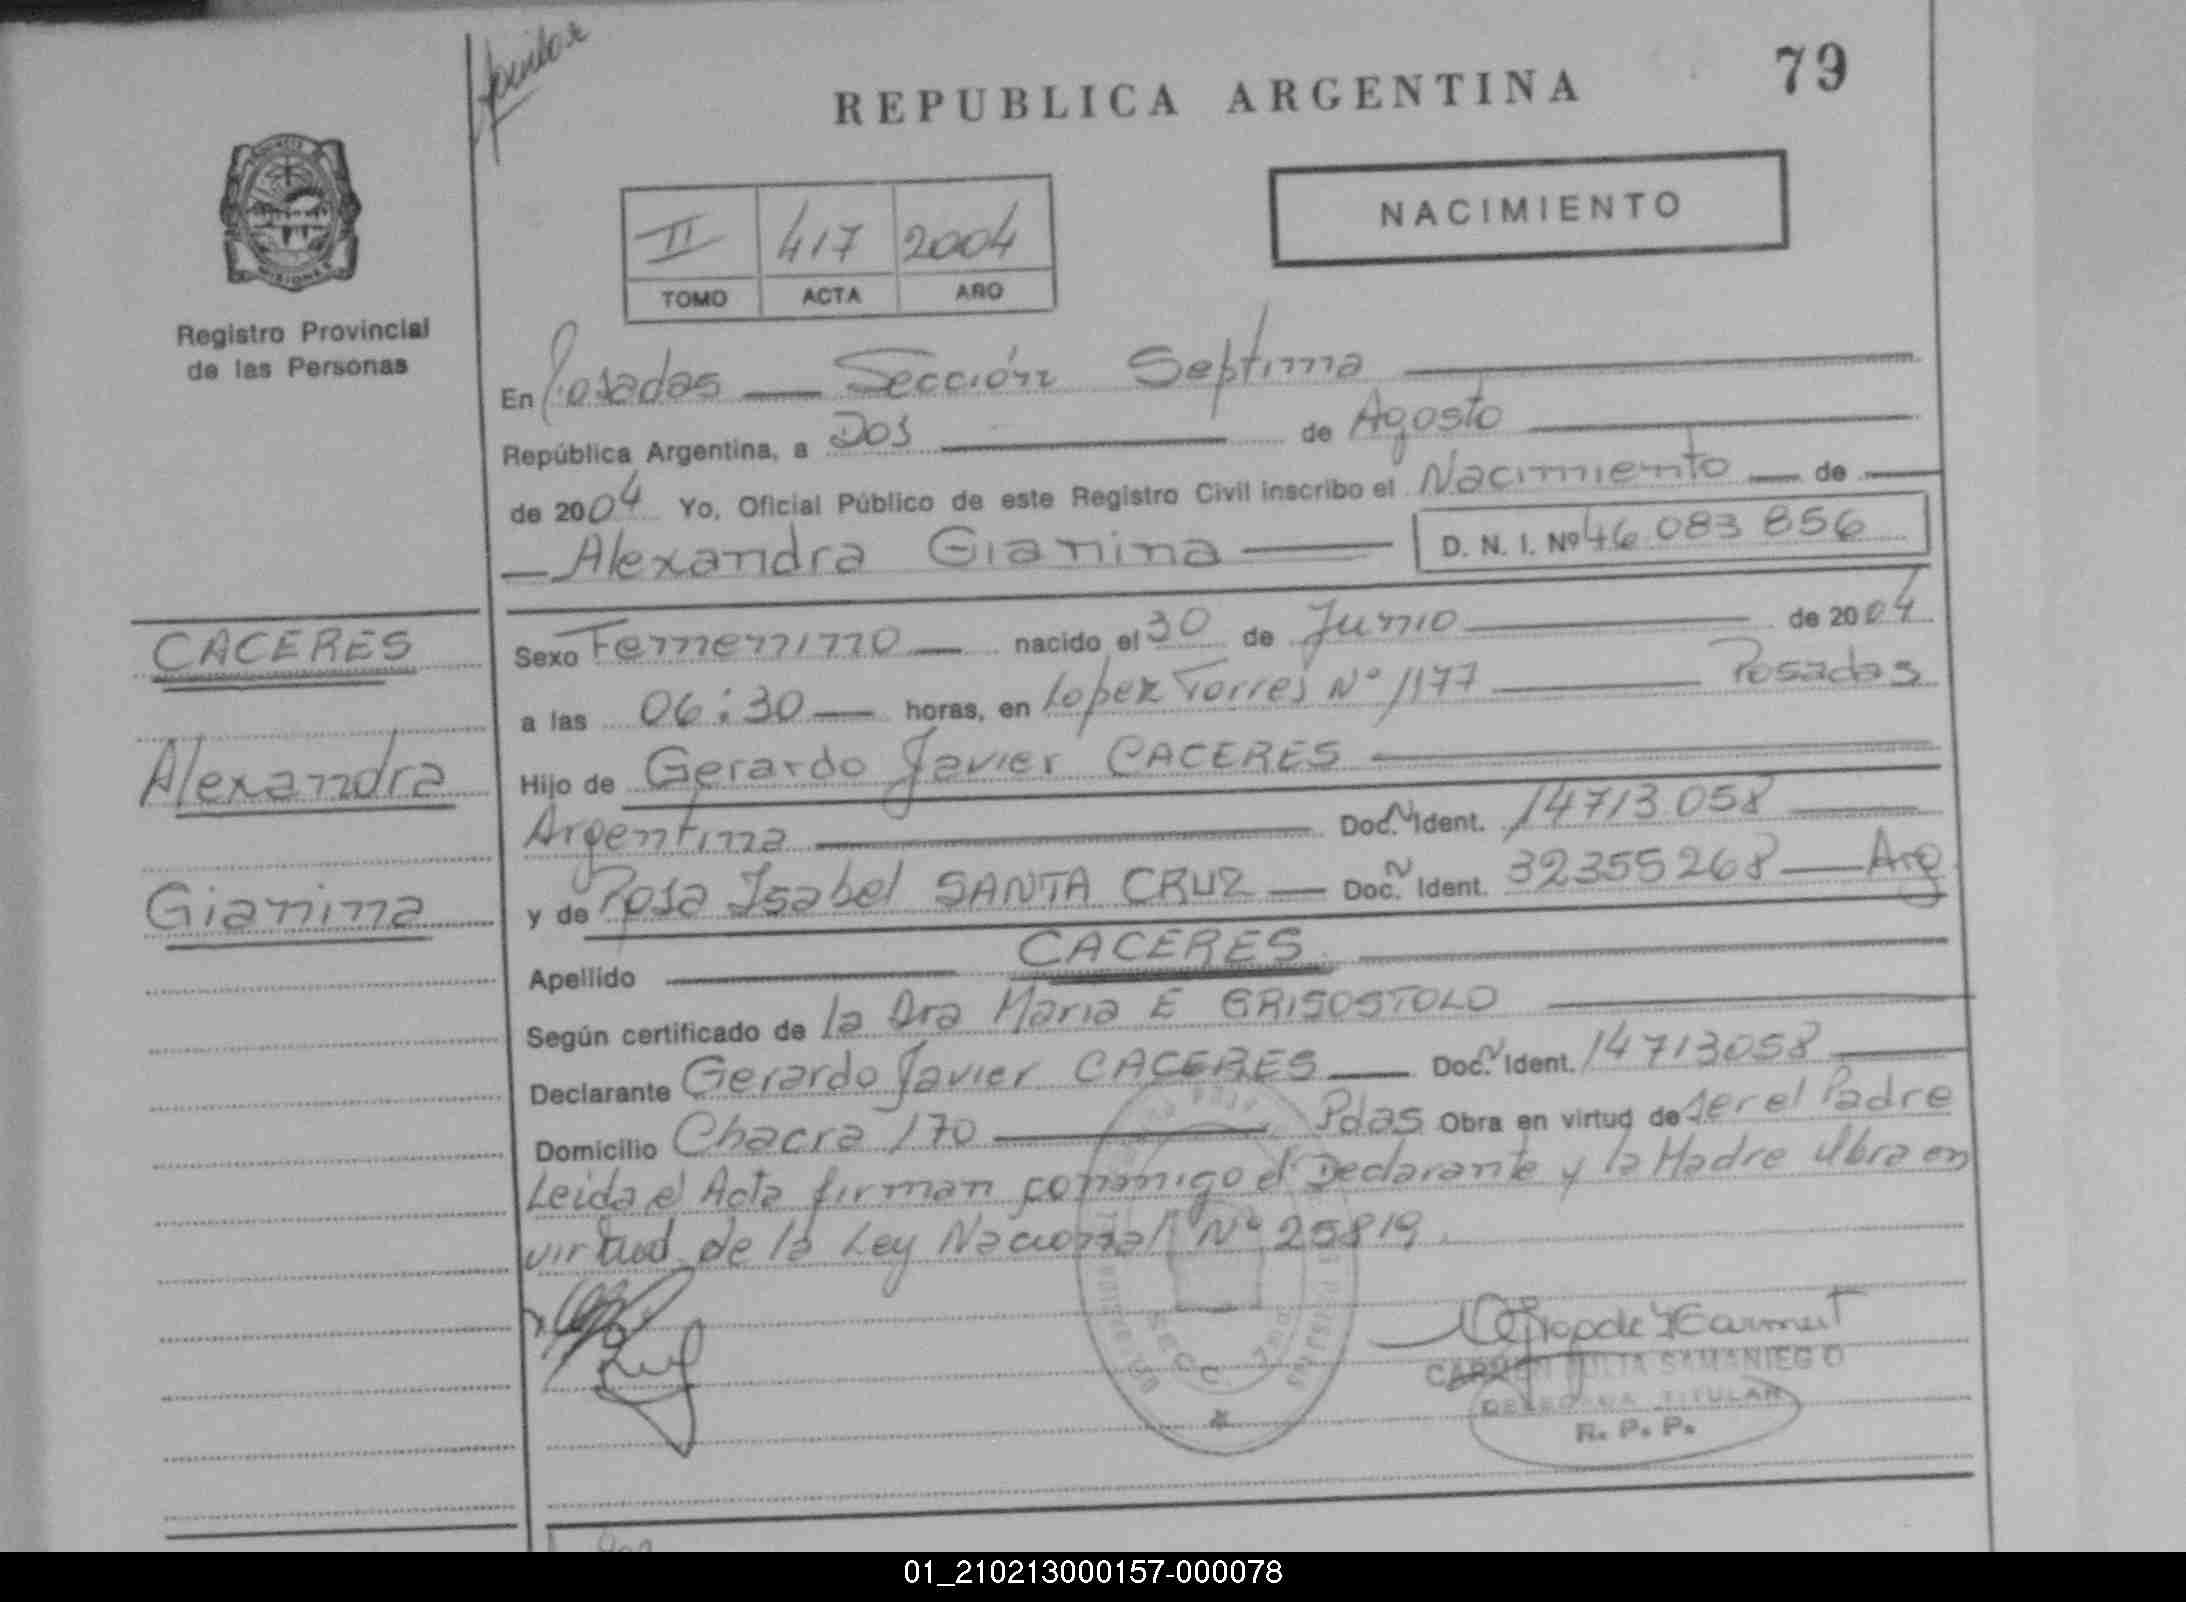 79
REPUBLICA ARGENTINA
NACIMIENTO
II 417 2004
TOMO ACTA AÑO
MISIONES
Registro Provincial
de las Personas
En Posadas — Sección Septima
República Argentina, a Dos de Agosto
de 2004 Yo, Oficial Público de este Registro Civil inscribo el Nacimiento — de
— Alexandra Gianina — D. N. I. Nº 46 083 856
CACERES
Alexandra
Gianina
Sexo Femenino — nacido el 30 de Junio de 2004
a las 06:30 — horas, en Lopez Torres Nº 1177 — Posadas
Hijo de Gerardo Javier CACERES
Argentina Doc. Ident. 14713.058
y de Rosa Isabel SANTA CRUZ — Doc. Ident. 32355268 — Arg
Apellido CACERES
Según certificado de la Dra Maria E GRISOSTOLO
Declarante Gerardo Javier CACERES — Doc. Ident. 14713058
Domicilio Chacra 170 — Pdas Obra en virtud de ser el Padre
Leida el Acta firman conmigo el Declarante y la Madre Obra en
virtud de la Ley Nacional Nº 25819
CARMEN JULIA SAMANIEGO
DELEGADA TITULAR
R. P. P.
01_210213000157-000078